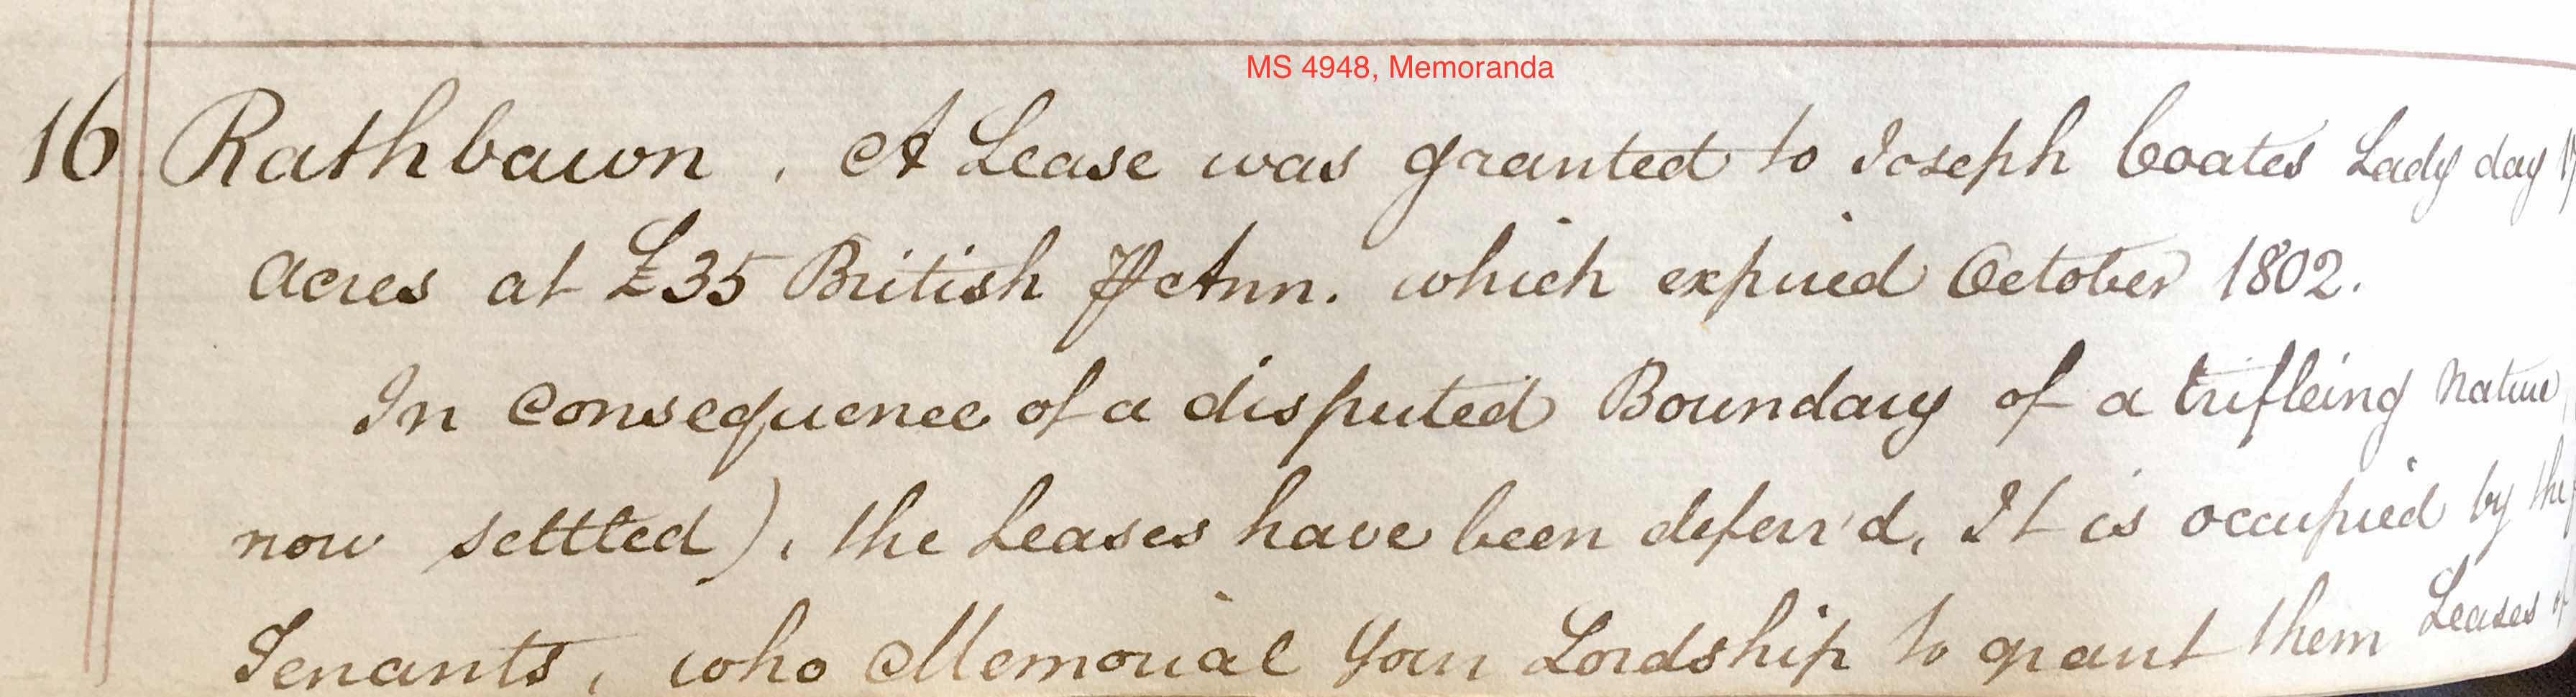 MS 4948, Memoranda
16 Rathbawn. A Lease was granted to Joseph Coates Lady day
acres at £35 British ⅌ Ann. which expired October 1802.
In Consequence of a disputed Boundary of a trifleing Nature
now settled), the Leases have been deferr'd, It is occupied by the
Tenants, who Memorial Your Lordship to grant them Leases